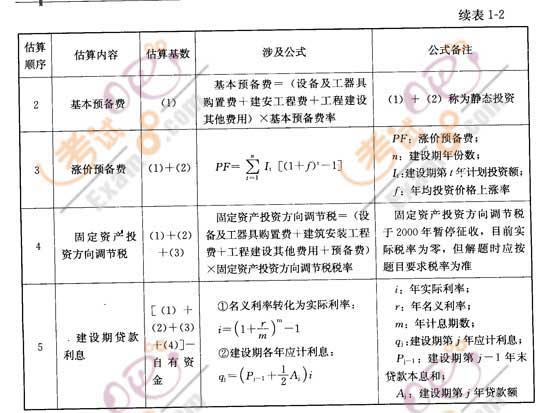 续表 1-2
估算顺序 估算内容 估算基数 涉及公式 公式备注
2 基本预备费 (1)
基本预备费=(设备及工器具
购置费+建安工程费+工程建设
其他费用)×基本预备费率
(1)+(2)称为静态投资
3 涨价预备费 (1)+(2)
PF= n ∑ t=1 It [(1+f)^t-1]
PF:涨价预备费;
n:建设期年份数;
It:建设期第 t 年计划投资额;
f:年均投资价格上涨率
4 固定资产投
资方向调节税
(1)+(2)
+(3)
固定资产投资方向调节税=(设
备及工器具购置费+建筑安装工程
费+工程建设其他费用+预备费)
×固定资产投资方向调节税税率
固定资产投资方向调节税
于 2000 年暂停征收,目前实
际税率为零,但解题时应按
题目要求税率为准
5 建设期贷款
利息
[(1)+
(2)+(3)
+(4)]-
自有资
金
①名义利率转化为实际利率:
i=(1+r/m)^m-1
②建设期各年应计利息:
qj=(Pj-1+1/2Aj)i
i:年实际利率;
r:年名义利率;
m:年计息期数;
qj:建设期第 j 年应计利息;
Pj-1:建设期第 j-1 年末
贷款本息和;
Aj:建设期第 j 年贷款额
考试
Exam8.com